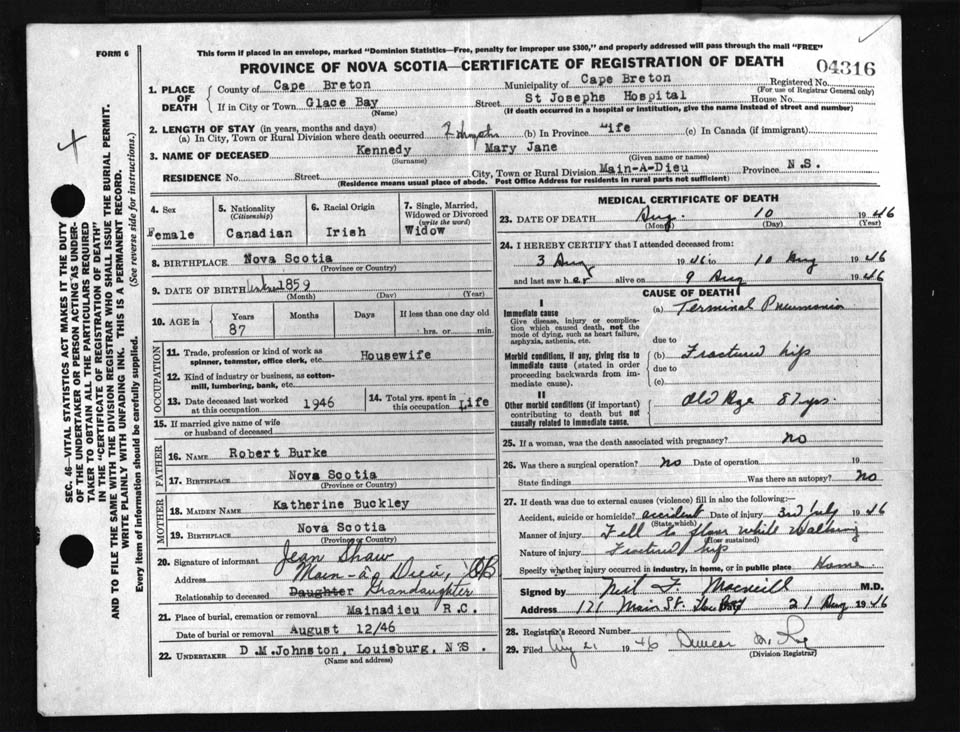 FORM 6
This form if placed in an envelope, marked "Dominion Statistics—Free, penalty for improper use $300," and properly addressed will pass through the mail "FREE"
PROVINCE OF NOVA SCOTIA—CERTIFICATE OF REGISTRATION OF DEATH
04316
1. PLACE OF DEATH
County of Cape Breton Municipality of Cape Breton Registered No.
(For use of Registrar General only)
If in City or Town Glace Bay Street St Josephs Hospital House No.
(Name) (If death occurred in a hospital or institution, give the name instead of street and number)
2. LENGTH OF STAY (in years, months and days)
(a) In City, Town or Rural Division where death occurred (b) In Province Life (c) In Canada (if immigrant)
3. NAME OF DECEASED Kennedy Mary Jane
(Surname) (Given name or names)
RESIDENCE No. Street City, Town or Rural Division Main-A-Dieu Province N.S.
(Residence means usual place of abode. Post Office Address for residents in rural parts not sufficient)
4. Sex Female
5. Nationality (Citizenship) Canadian
6. Racial Origin Irish
7. Single, Married, Widowed or Divorced (write the word) Widow
8. BIRTHPLACE Nova Scotia
(Province or Country)
9. DATE OF BIRTH 1859
(Month) (Day) (Year)
10. AGE in Years 87 Months Days If less than one day old hrs. or min.
OCCUPATION
11. Trade, profession or kind of work as spinner, teamster, office clerk, etc. Housewife
12. Kind of industry or business, as cotton-mill, lumbering, bank, etc.
13. Date deceased last worked at this occupation 1946
14. Total yrs. spent in this occupation Life
15. If married give name of wife or husband of deceased
FATHER
16. NAME Robert Burke
17. BIRTHPLACE Nova Scotia
(Province or Country)
MOTHER
18. MAIDEN NAME Katherine Buckley
19. BIRTHPLACE Nova Scotia
(Province or Country)
20. Signature of informant Jean Shaw
Address Main-à-Dieu, CB
Relationship to deceased Daughter Grandaughter
21. Place of burial, cremation or removal Mainadieu R.C.
Date of burial or removal August 12/46
22. UNDERTAKER D.M.Johnston, Louisburg, N.S.
(Name and address)
MEDICAL CERTIFICATE OF DEATH
23. DATE OF DEATH Aug. 10 1946
(Month) (Day) (Year)
24. I HEREBY CERTIFY that I attended deceased from:
3 Aug 1946 to 10 Aug 1946
and last saw her alive on 9 Aug 1946
CAUSE OF DEATH
I
Immediate cause
Give disease, injury or complication which caused death, not the mode of dying, such as heart failure, asphyxia, asthenia, etc.
(a) Terminal Pneumonia
due to
Morbid conditions, if any, giving rise to immediate cause (stated in order proceeding backwards from immediate cause).
(b) Fractured hip
due to
(c)
II
Other morbid conditions (if important) contributing to death but not causally related to immediate cause.
Old Age 87 yrs.
25. If a woman, was the death associated with pregnancy? no
26. Was there a surgical operation? no Date of operation 19
State findings Was there an autopsy? no
27. If death was due to external causes (violence) fill in also the following:—
Accident, suicide or homicide? accident Date of injury 3rd July 1946
(State which)
Manner of injury Fell to floor while walking
(How sustained)
Nature of injury Fractured hip
Specify whether injury occurred in industry, in home, or in public place Home
Signed by Neil F. Macneill M.D.
Address 171 Main St. 21 Aug 1946
28. Registrar's Record Number
29. Filed Aug 21 1946 Duncan
(Division Registrar)
SEC. 46—VITAL STATISTICS ACT MAKES IT THE DUTY
OF THE UNDERTAKER OR PERSON ACTING AS UNDER-
TAKER TO OBTAIN ALL THE PARTICULARS REQUIRED
IN THE "CERTIFICATE OF REGISTRATION OF DEATH"
AND TO FILE THE SAME WITH THE DIVISION REGISTRAR WHO SHALL ISSUE THE BURIAL PERMIT.
WRITE PLAINLY WITH UNFADING INK. THIS IS A PERMANENT RECORD.
Every item of information should be carefully supplied. (See reverse side for instructions.)